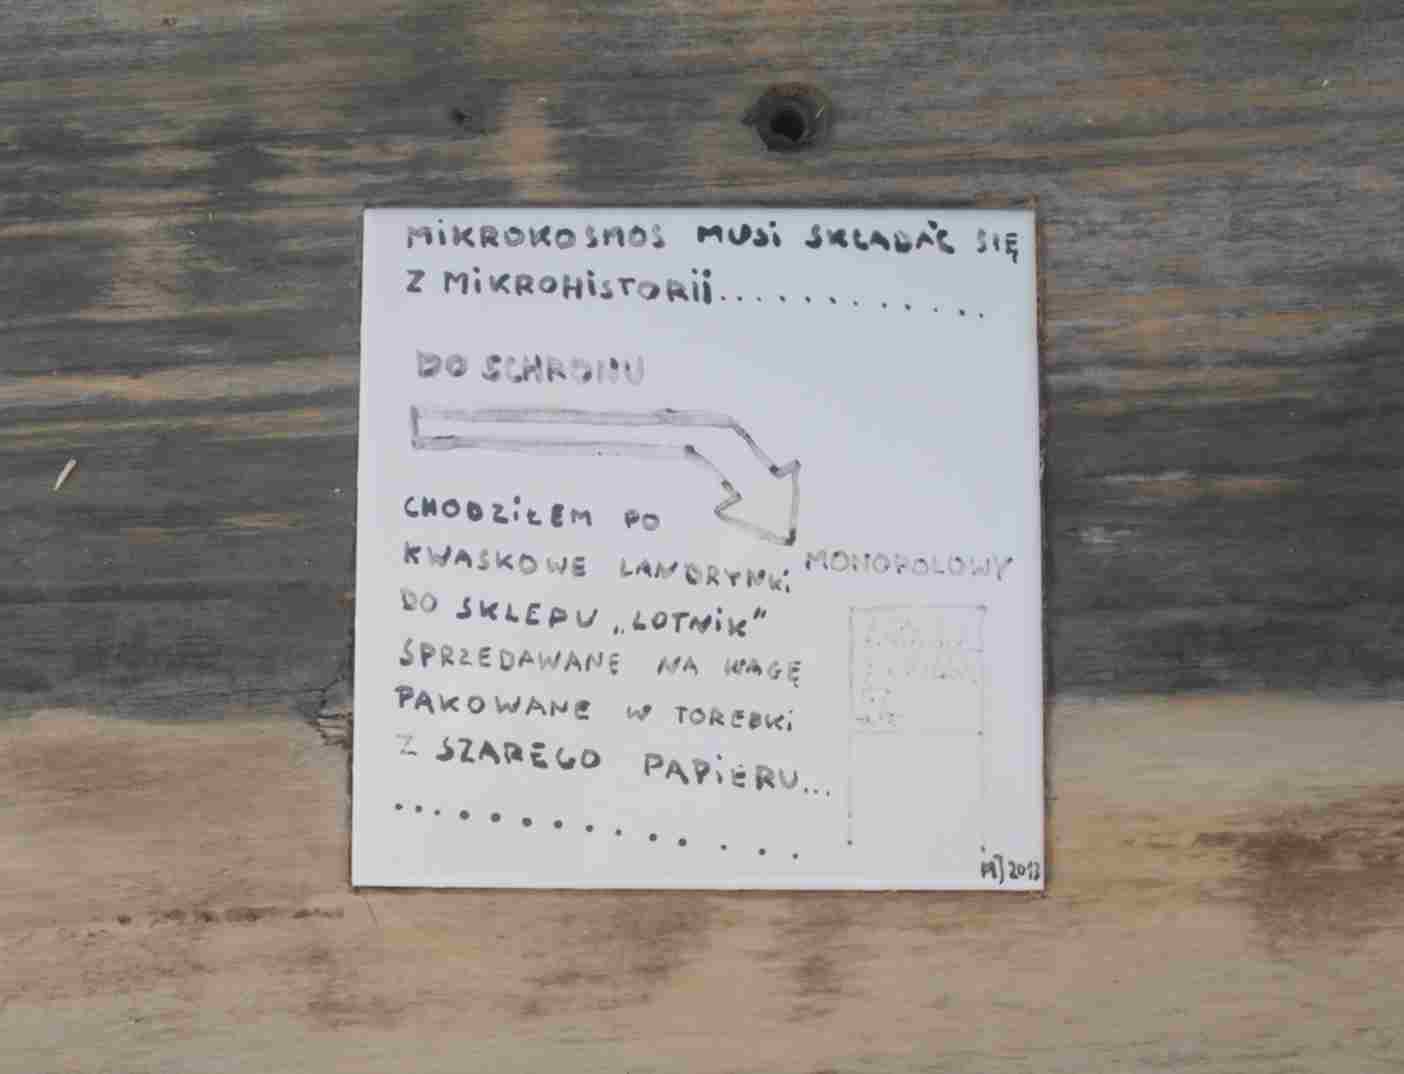 MiKROKOSMOS MUSi SKŁADAĆ SIĘ
Z MiKROHiSTORii............
DO SCHRONU
CHODZiŁEM PO
KWASKOWE LANDRYNKi
DO SKLEPU „LOTNiK"
SPRZEDAWANE NA WAGĘ
PAKOWANE W TOREBKi
Z SZAREGO PAPiERU...
..............
MONOPOLOWY
2012